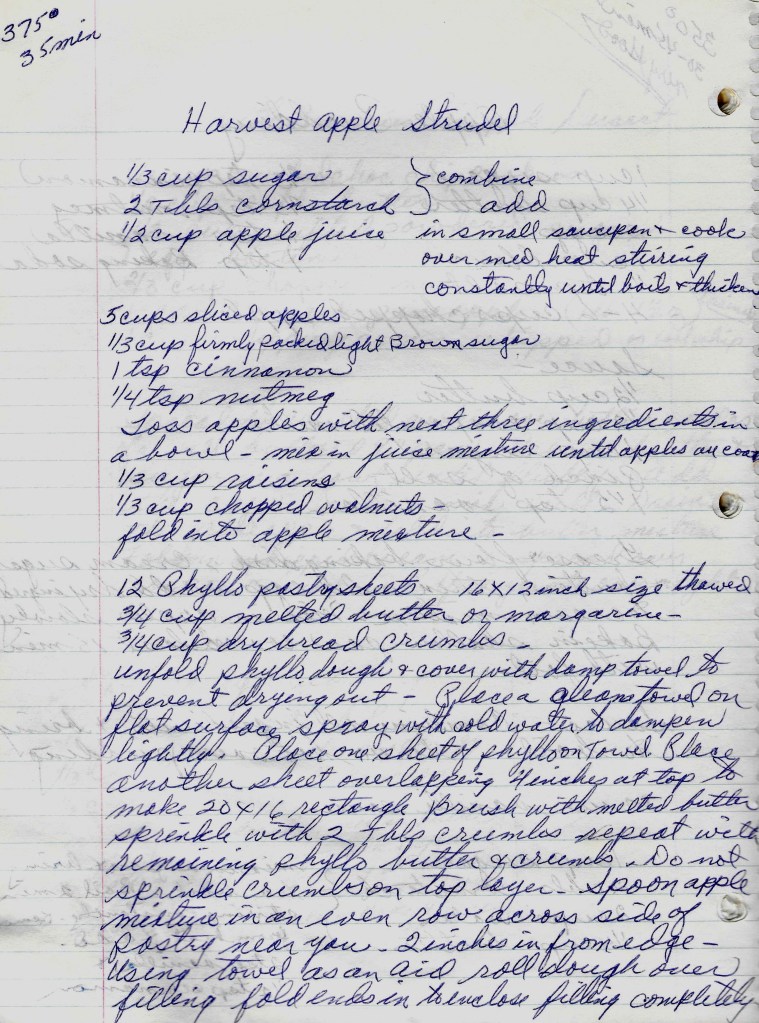 375°
35 min
Harvest apple Strudel
1/3 cup sugar } combine
2 Tbls cornstarch } add
1/2 cup apple juice in small saucepan & cook
over med heat stirring
constantly until boils & thicken
5 cups sliced apples
1/3 cup firmly packed light Brown sugar
1 tsp cinnamon
1/4 tsp nutmeg
Toss apples with next three ingredients in
a bowl - mix in juice mixture until apples are coat
1/3 cup raisins
1/3 cup chopped walnuts -
fold into apple mixture -
12 Phyllo pastry sheets 16X12 inch size thawed
3/4 cup melted butter or margarine -
3/4 cup dry bread crumbs -
unfold phyllo dough & cover with damp towel to
prevent drying out - Place a clean towel on
flat surface, spray with cold water to dampen
lightly. Place one sheet of phyllo on Towel Place
another sheet overlapping 4 inches at top to
make 20X16 rectangle Brush with melted butter
sprinkle with 2 Tbls crumbs repeat with
remaining phyllo butter & crumbs. Do not
sprinkle crumbs on top layer - Spoon apple
mixture in an even row across side of
pastry near you - 2 inches in from edge -
Using towel as an aid roll dough over
filling fold ends in to enclose filling completely